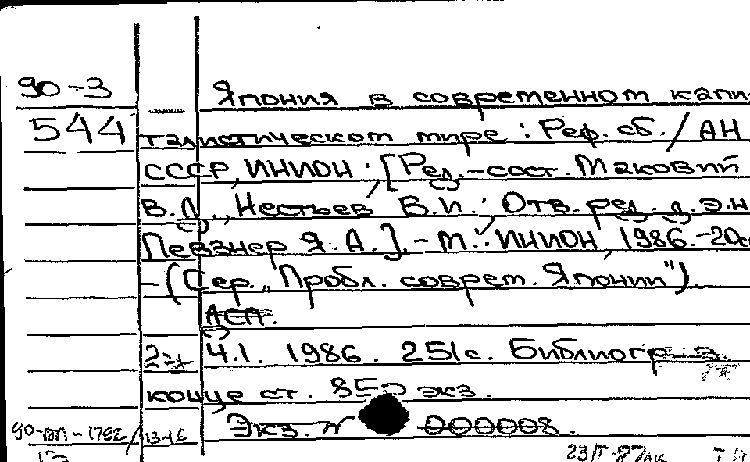 90-3 Япония в современном капи
544 талистическом мире : Реф. сб. / АН
СССР, ИНИОН ; [Ред.-сост. Маковий
В.П., Нестьев В.И. ; Отв. ред. д.э.н
Певзнер Я.А.]. - М. : ИНИОН, 1986. - 20см
- (Сер. „Пробл. соврем. Японии").
АСП.
Ч.1. 1986. 251с. Библиогр. в
конце ст. 850 экз.
90-ВП-1792/13-16 Экз. N 000008.